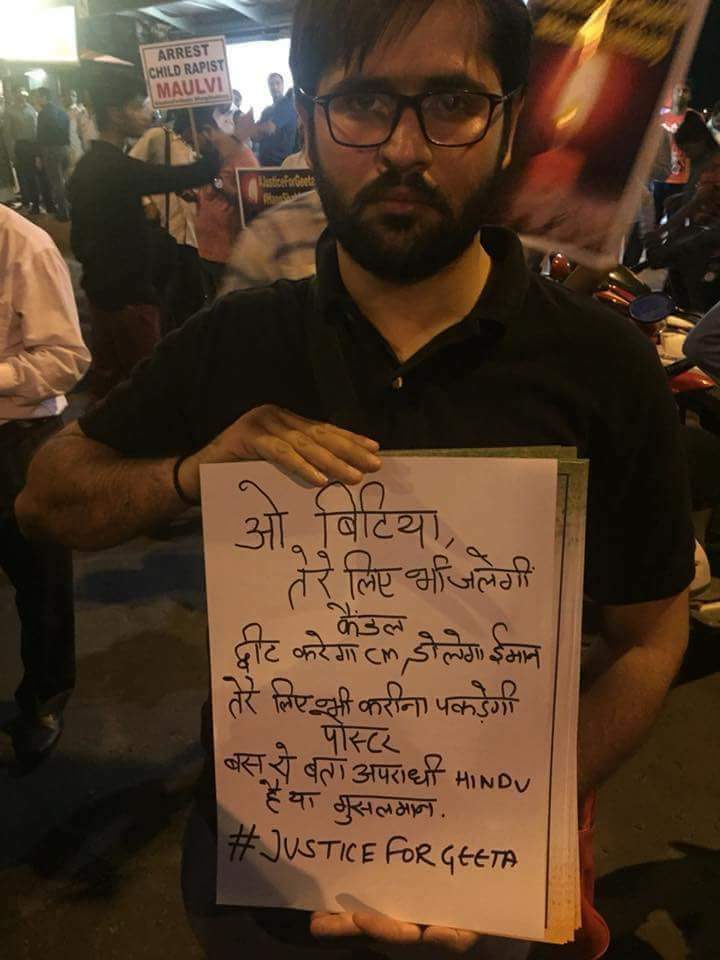 ARREST
CHILD RAPIST
MAULVI
#JusticeForGeeta
ओ बिटिया,
तेरे लिए भी जलेगीं
कैंडल
ट्वीट करेगा CM, डोलेगा ईमान
तेरे लिए भी करीना पकड़ेगी
पोस्टर
बस ये बता अपराधी HINDU
है या मुसलमान.
#JUSTICE FOR GEETA